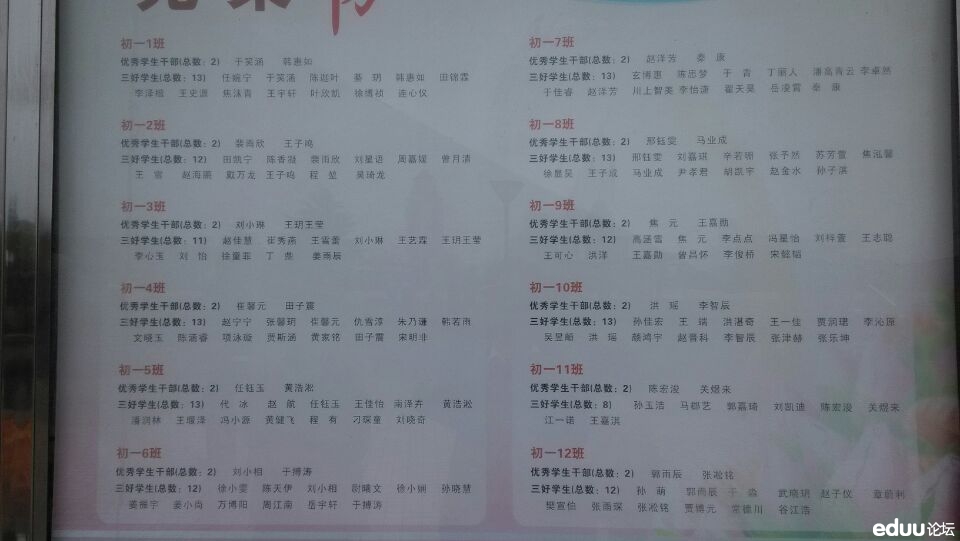 光荣榜
初一1班
优秀学生干部(总数：2) 于笑涵 韩惠如
三好学生(总数：13) 任婉宁 于笑涵 陈迦叶 綦玥 韩惠如 田锦霖
李泽楷 王史源 焦沫青 王宇轩 叶欣凯 徐博祯 连心仪
初一2班
优秀学生干部(总数：2) 裴雨欣 王子鸣
三好学生(总数：12) 田凯宁 陈香凝 裴雨欣 刘星语 周嘉媛 曾月清
王富 赵海鹏 戴万龙 王子鸣 程堃 吴琦龙
初一3班
优秀学生干部(总数：2) 刘小琳 王玥王莹
三好学生(总数：11) 赵佳慧 崔秀燕 王雪蕾 刘小琳 王艺霖 王玥王莹
李心玉 刘怡 徐童菲 丁些 姜雨辰
初一4班
优秀学生干部(总数：2) 崔馨元 田子震
三好学生(总数：13) 赵宁宁 张馨玥 崔馨元 仇雪淳 朱乃谦 韩若雨
文晓玉 陈涵睿 项泳璇 贾斯涵 黄家铭 田子震 宋明非
初一5班
优秀学生干部(总数：2) 任钰玉 黄浩淞
三好学生(总数：13) 代冰 赵航 任钰玉 王佳怡 南泽卉 黄浩淞
潘润林 王堰泽 冯小源 黄健飞 程有 刁琛童 刘晓奇
初一6班
优秀学生干部(总数：2) 刘小相 于搏涛
三好学生(总数：12) 徐小雯 陈天伊 刘小相 尉曦文 徐小娴 孙晓慧
姜振宇 姜小尚 万博阳 周江南 岳宇轩 于搏涛
初一7班
优秀学生干部(总数：2) 赵泽芳 秦康
三好学生(总数：13) 玄博惠 陈忠梦 于青 丁丽人 潘高青云 李卓然
于佳睿 赵泽芳 川上智美 李怡潇 翟天昊 岳凌霄 秦康
初一8班
优秀学生干部(总数：2) 邢钰雯 马业成
三好学生(总数：13) 邢钰雯 刘嘉琪 辛若珊 张予然 苏芳萱 焦泓馨
徐晨昊 王子成 马业成 尹孝君 胡凯宇 赵金水 孙子淇
初一9班
优秀学生干部(总数：2) 焦元 王嘉勋
三好学生(总数：12) 高涵雪 焦元 李点点 冯星怡 刘梓萱 王志聪
王可心 洪洋 王嘉勋 曾吕怀 李俊桥 宋懿韬
初一10班
优秀学生干部(总数：2) 洪瑶 李智辰
三好学生(总数：13) 孙佳宏 王瑞 洪湛奇 王一佳 贾润珺 李沁原
吴昱頔 洪瑶 颜鸿宇 赵晋科 李智辰 张津赫 张乐坤
初一11班
优秀学生干部(总数：2) 陈宏浚 关煜来
三好学生(总数：8) 孙玉洁 马郡艺 郭嘉琦 刘凯迪 陈宏浚 关煜来
江一诺 王嘉淇
初一12班
优秀学生干部(总数：2) 郭雨辰 张凇铭
三好学生(总数：12) 孙萌 郭雨辰 于淼 武晓玥 赵子仪 章蔚利
樊宣伯 张雨琛 张凇铭 贾博元 常德川 谷江浩
eduu论坛